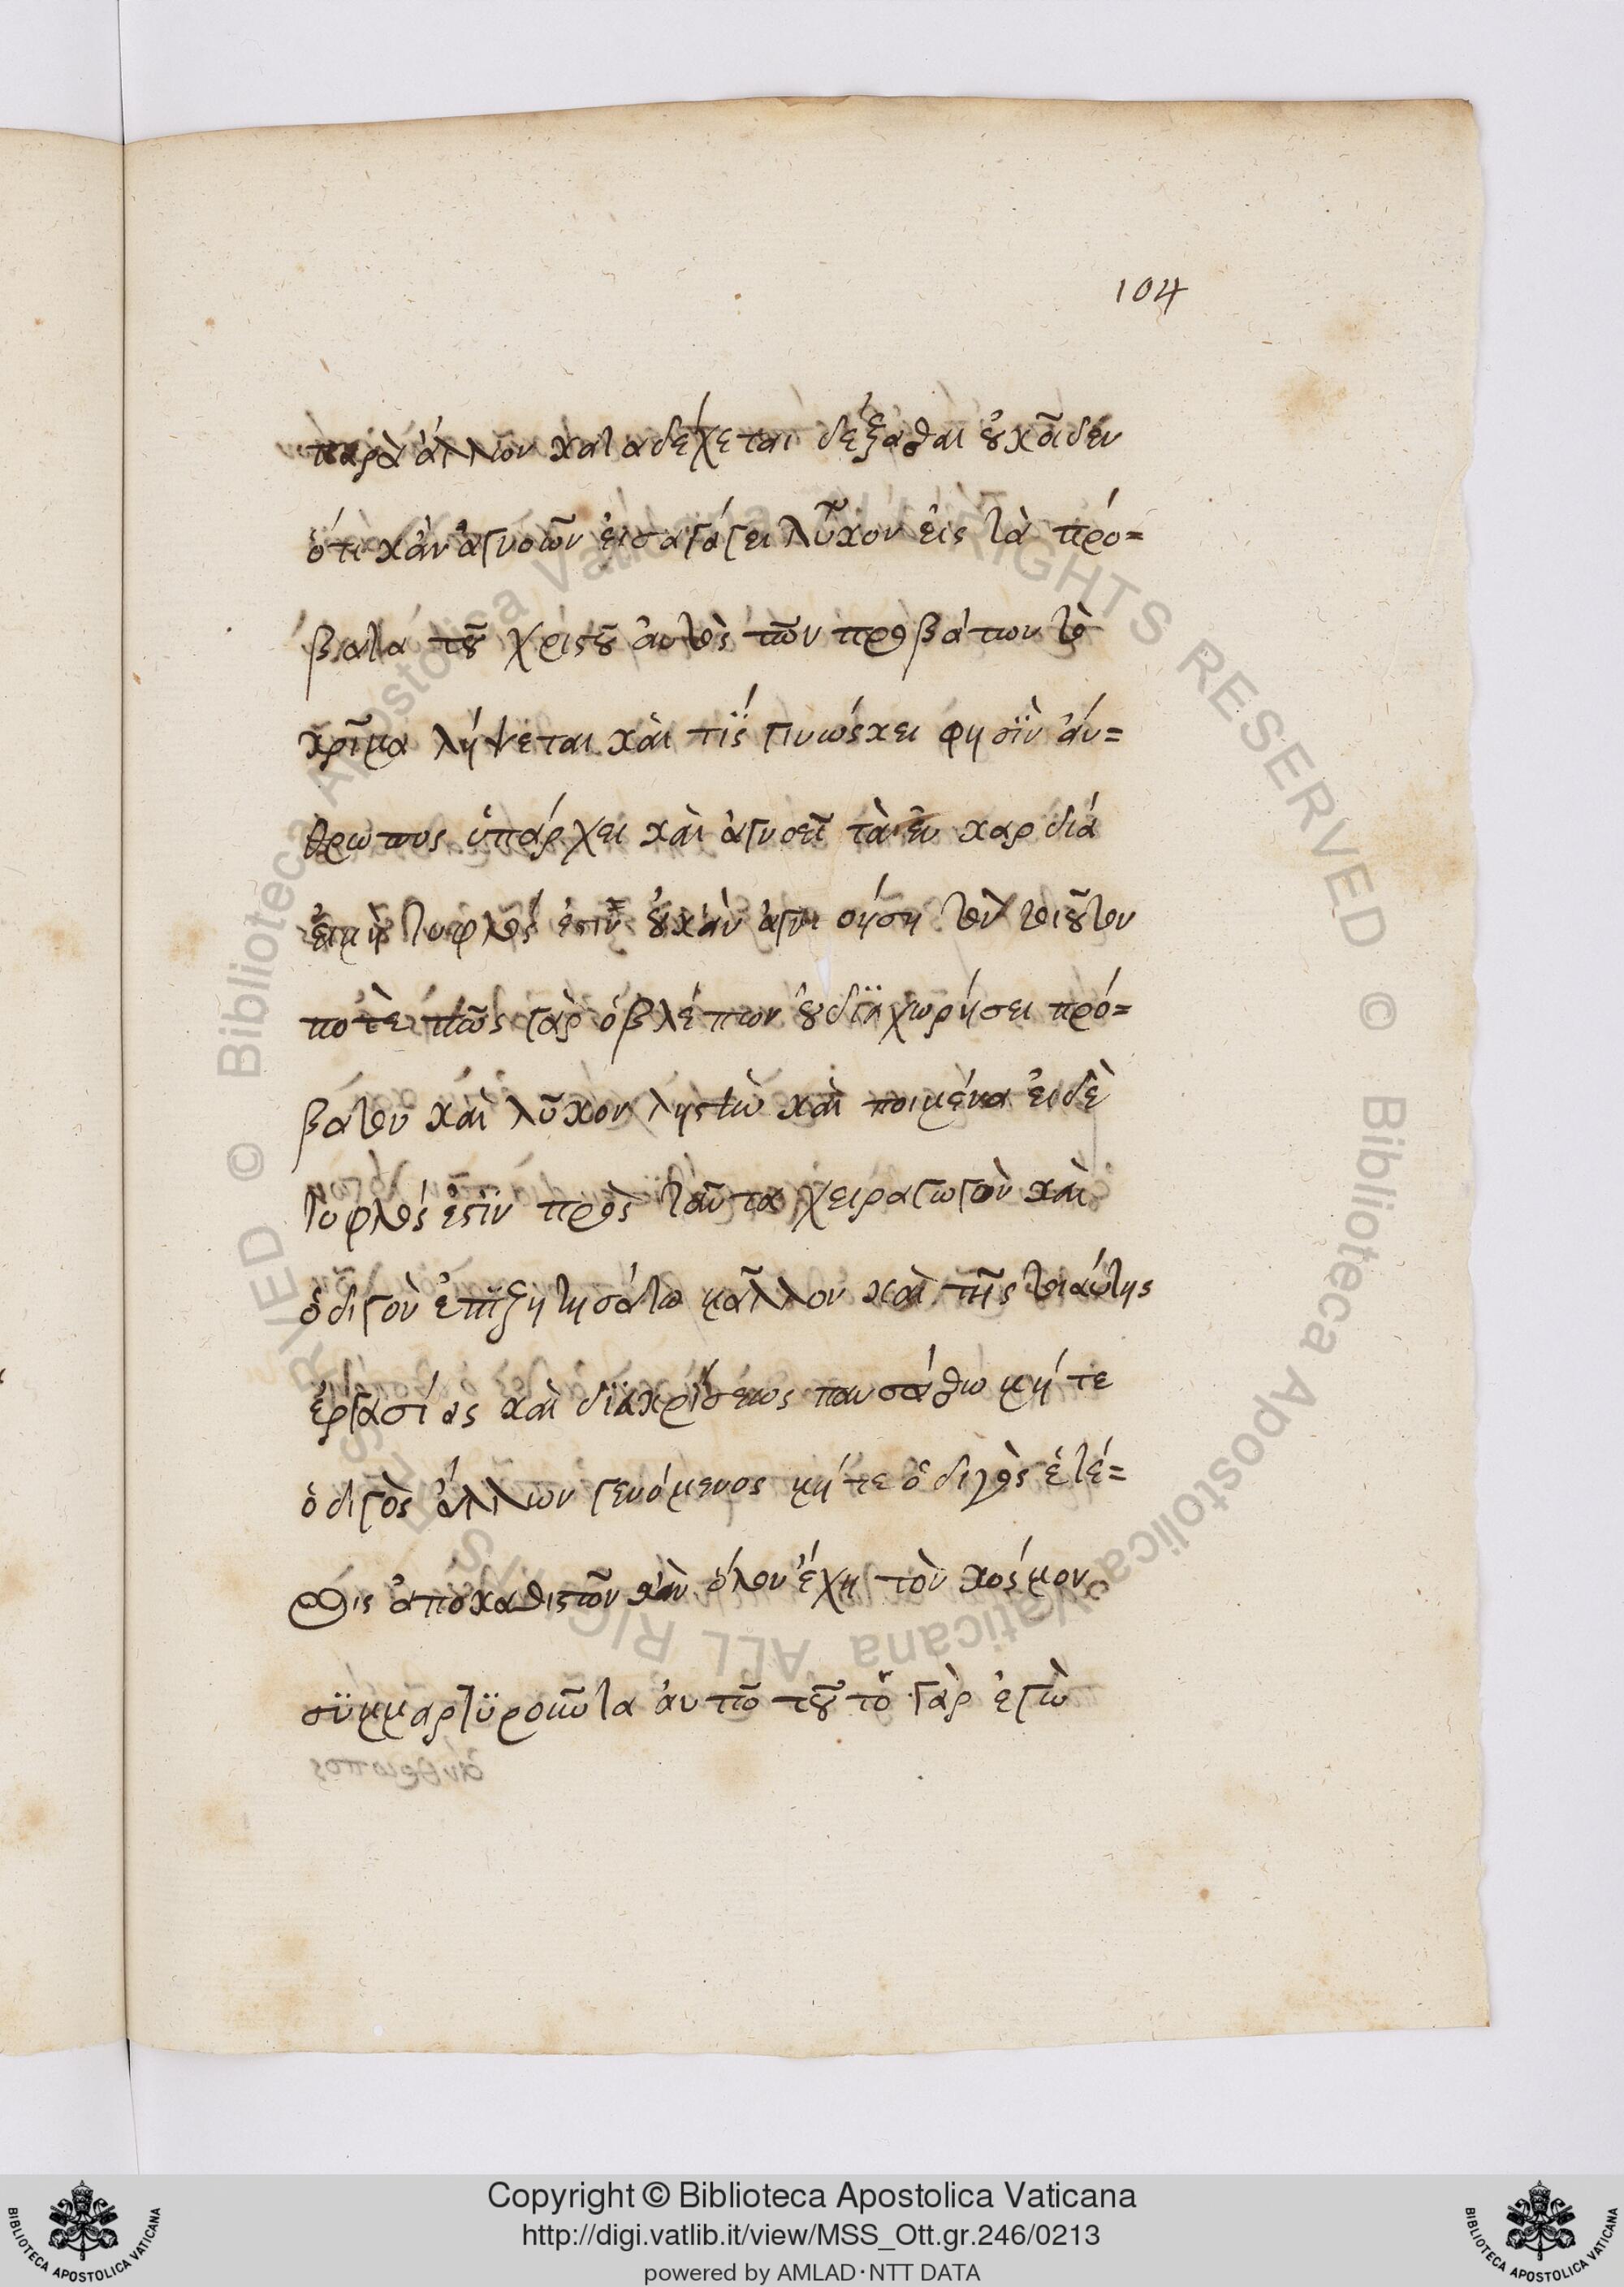 104
παρὰ ἄλλων καταδέχεται δέξασθαι οὐκ οἶδεν
ὅτι κἀν ἀγνοῶν εἰσαγάγει λῦκον εἰς τὰ πρό=
βατα τοῦ χριστοῦ αὐτὸς τῶν προβάτων τὸ
κρῖμα λήψεται καὶ τίς γινώσκει φησϊν ἄν=
θρωπος ὑπάρχει καὶ ἀγνοεῖ τὰ ἐν καρδιά
εἰ μὴ τυφλός ἐστϊν οὐκ ἀν ἀγνι σήση τὸν τοιοῦτον
ποτὲ πῶς γὰρ ὁ βλέπων οὐ διαχωρήσει πρό=
βατον καὶ λῦκον ληστὼ καὶ ποιμένα εἰ δὲ
τυφλός ἐστϊν πρὸς ταῦτα χειραγωγὸν καὶ
ὁδιγὸν ἐπϊζητησάτω μᾶλλον καὶ τῆς τοιαύτης
ἐργασίας καὶ διακρίσεως παυσάσθω μήτε
ὁδιγὸς ἄλλων γενόμενος μήτε ὁδιγὸς ἑτέ=
ροις ἀποκαθιστῶν κἀν ὅλον ἔχη τὸν κόσμον
σϋμμαρτϋροῦντα αὐτῶ τοῦτο γὰρ ἐγὼ
Copyright © Biblioteca Apostolica Vaticana
http://digi.vatlib.it/view/MSS_Ott.gr.246/0213
powered by AMLAD·NTT DATA